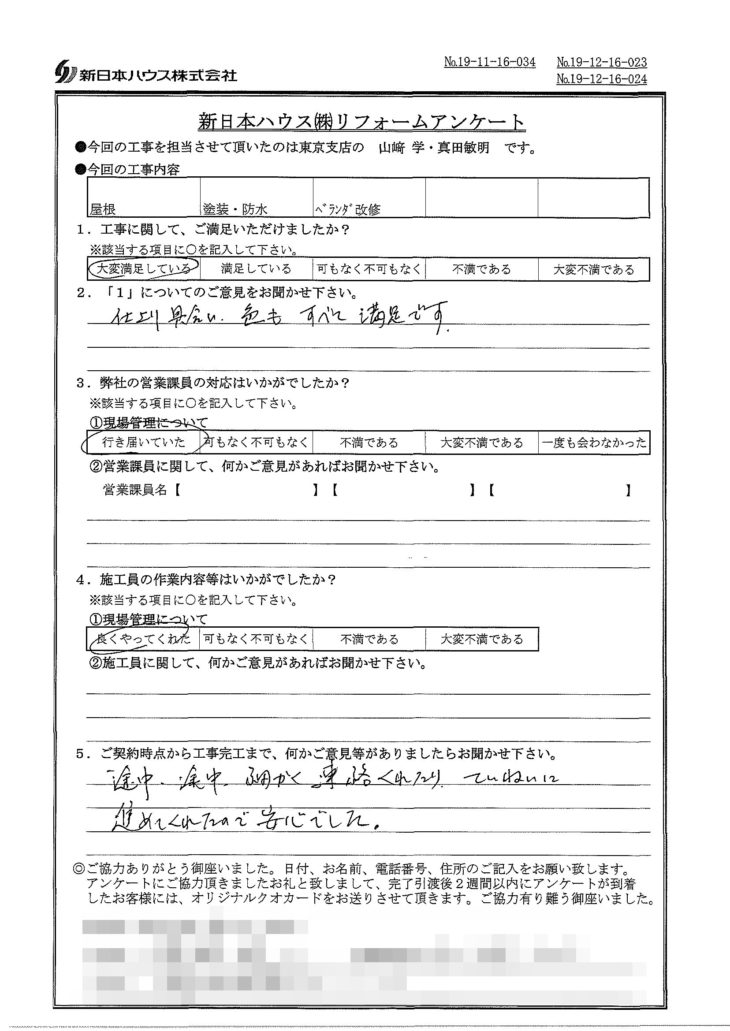 新日本ハウス株式会社
№19-11-16-034 №19-12-16-023
№19-12-16-024
新日本ハウス㈱リフォームアンケート
●今回の工事を担当させて頂いたのは東京支店の 山﨑 学・真田敏明 です。
●今回の工事内容
屋根 塗装・防水 ﾍﾞﾗﾝﾀﾞ改修
1．工事に関して、ご満足いただけましたか？
※該当する項目に○を記入して下さい。
大変満足している 満足している 可もなく不可もなく 不満である 大変不満である
2．「1」についてのご意見をお聞かせ下さい。
仕上り具合い、色も すべて 満足です
3．弊社の営業課員の対応はいかがでしたか？
※該当する項目に○を記入して下さい。
①現場管理について
行き届いていた 可もなく不可もなく 不満である 大変不満である 一度も会わなかった
②営業課員に関して、何かご意見があればお聞かせ下さい。
営業課員名【 】【 】【 】
4．施工員の作業内容等はいかがでしたか？
※該当する項目に○を記入して下さい。
①現場管理について
良くやってくれた 可もなく不可もなく 不満である 大変不満である
②施工員に関して、何かご意見があればお聞かせ下さい。
5．ご契約時点から工事完工まで、何かご意見等がありましたらお聞かせ下さい。
途中、途中、細かく連絡くれたり、ていねいに
進めてくれたので安心でした。
◎ご協力ありがとう御座いました。日付、お名前、電話番号、住所のご記入をお願い致します。
アンケートにご協力頂きましたお礼と致しまして、完了引渡後２週間以内にアンケートが到着
したお客様には、オリジナルクオカードをお送りさせて頂きます。ご協力有り難う御座いました。